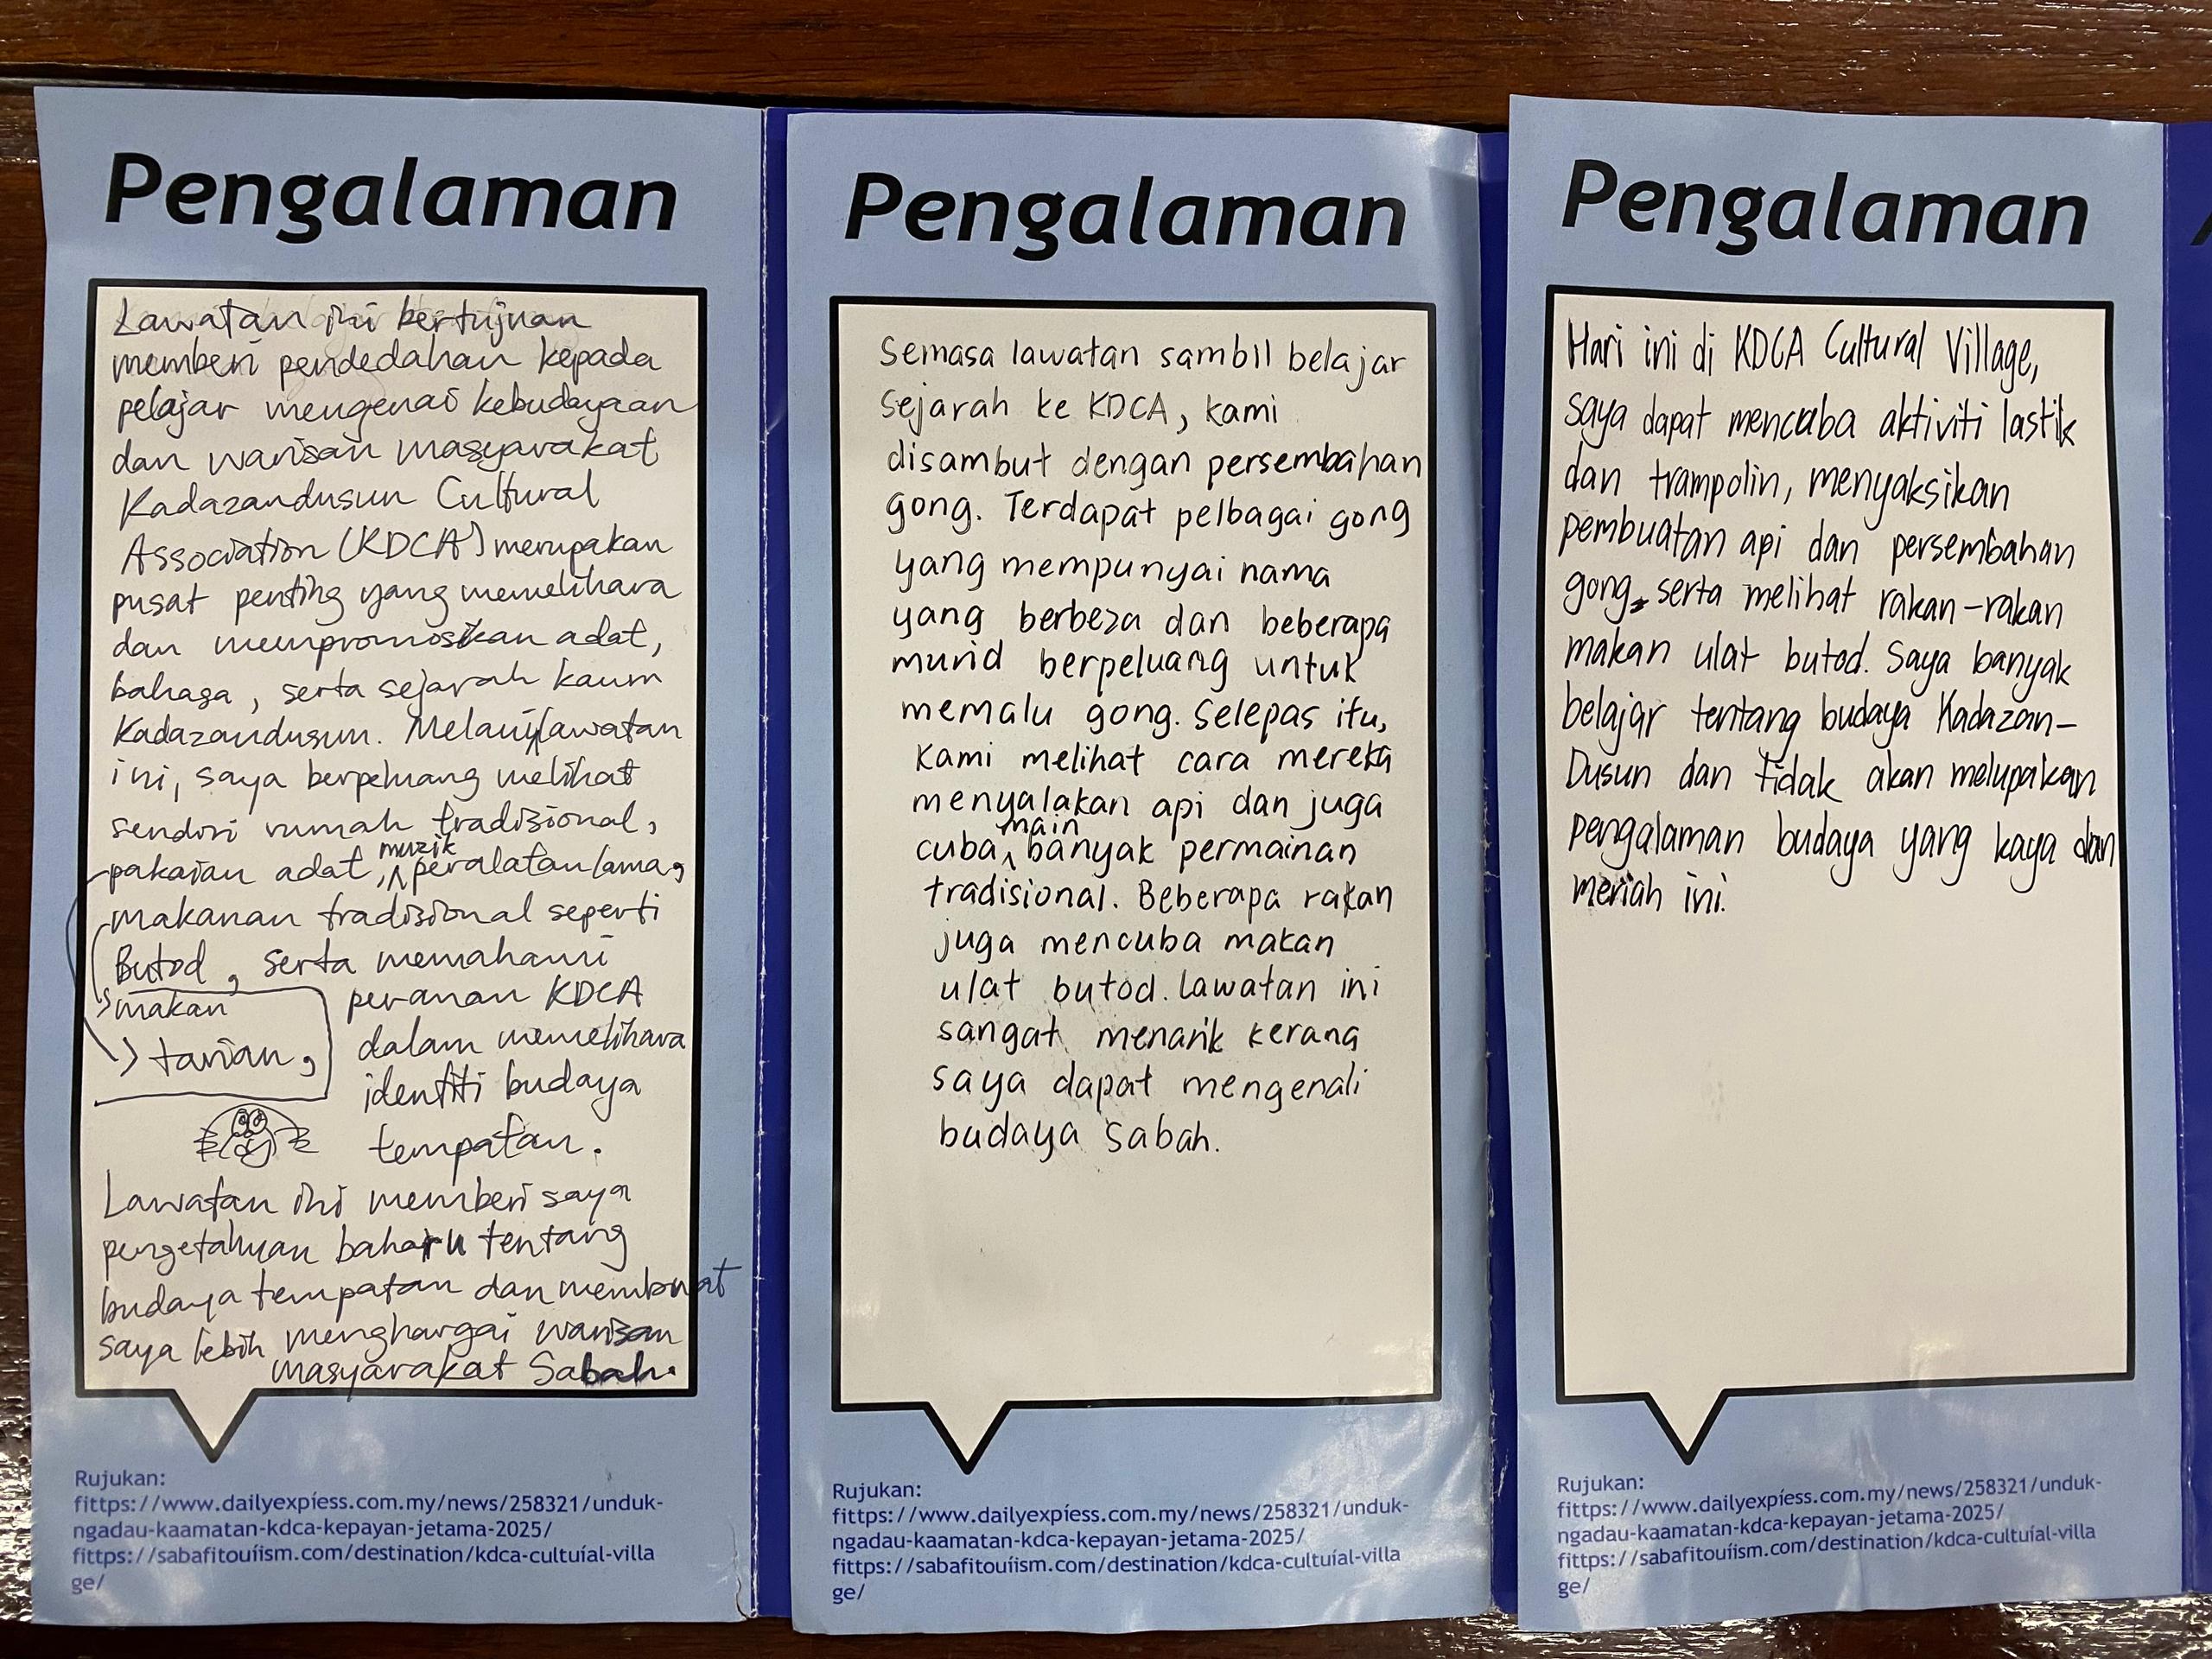 Pengalaman
Lawatan ini bertujuan
memberi pendedahan kepada
pelajar mengenai kebudayaan
dan warisan masyarakat
Kadazandusun Cultural
Association (KDCA) merupakan
pusat penting yang memelihara
dan mempromosikan adat,
bahasa, serta sejarah kaum
Kadazandusun. Melalui lawatan
ini, saya berpeluang melihat
sendiri rumah tradisional,
muzik
pakaian adat, peralatan lama,
makanan tradisional seperti
Butod, serta memahami
makan
tarian,
peranan KDCA
dalam memelihara
identiti budaya
tempatan.
Lawatan ini memberi saya
pengetahuan baharu tentang
budaya tempatan dan membuat
saya lebih menghargai warisan
masyarakat Sabah.
Rujukan:
fittps://www.dailyexpíess.com.my/news/258321/unduk-
ngadau-kaamatan-kdca-kepayan-jetama-2025/
fittps://sabafitouíism.com/destination/kdca-cultuíal-villa
ge/
Pengalaman
Semasa lawatan sambil belajar
sejarah ke KDCA, kami
disambut dengan persembahan
gong. Terdapat pelbagai gong
yang mempunyai nama
yang berbeza dan beberapa
murid berpeluang untuk
memalu gong. Selepas itu,
kami melihat cara mereka
menyalakan api dan juga
main
cuba banyak permainan
tradisional. Beberapa rakan
juga mencuba makan
ulat butod. Lawatan ini
sangat menarik kerana
saya dapat mengenali
budaya Sabah.
Rujukan:
fittps://www.dailyexpíess.com.my/news/258321/unduk-
ngadau-kaamatan-kdca-kepayan-jetama-2025/
fittps://sabafitouíism.com/destination/kdca-cultuíal-villa
ge/
Pengalaman
Hari ini di KDCA Cultural Village,
saya dapat mencuba aktiviti lastik
dan trampolin, menyaksikan
pembuatan api dan persembahan
gong, serta melihat rakan-rakan
makan ulat butod. Saya banyak
belajar tentang budaya Kadazan-
Dusun dan tidak akan melupakan
pengalaman budaya yang kaya dan
meriah ini.
Rujukan:
fittps://www.dailyexpíess.com.my/news/258321/unduk-
ngadau-kaamatan-kdca-kepayan-jetama-2025/
fittps://sabafitouíism.com/destination/kdca-cultuíal-villa
ge/